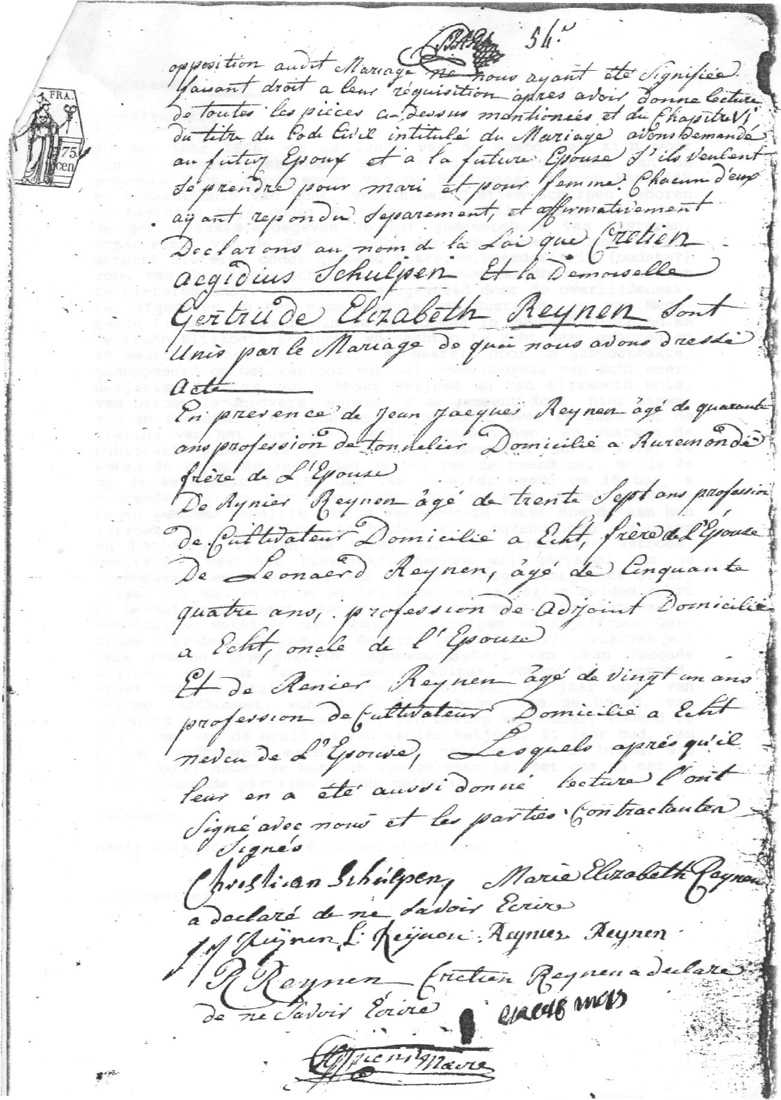 54.
opposition audit Mariage ne nous ayant été Signifiée
faisant droit a leur réquisition après avoir donné lecture
de toutes les pièces cu dessus mentionées et du Chapitre VI
du titre du Code Civil intitulé du Mariage avons Demandé
au futur Epoux et a la future Epouse S'ils veulent
Se prendre pour mari et pour femme. Chacun d'eux
ayant repondu Separement, et affirmativement
Declarons au nom de la Loi que Cretien
Aegidius Schulpen Et la Demoiselle
Gertrude Elizabeth Reynen Sont
Unis par le Mariage de quoi nous avons dressé
Acte
En presence de Jean Jacques Reynen âgé de quarante
ans profession de tonnelier Domicilié a Ruremonde
frère de L'Epouse
De Rynier Reynen âgé de trente Sept ans profession
de Cultivateur Domicilié a Echt, frère de L'Epouse
De Leonaerd Reynen, âgé de Cinquante
quatre ans, profession de Adjoint Domicilié
a Echt, oncle de l'Epouse
Et de Renier Reynen âgé de vingt un ans
profession de Cultivateur Domicilié a Echt
neveu de L'Epouse, Lesquels après qu'il
leur en a été aussi donné lecture l'ont
Signé avec nous et les parties Contractanten
Signés
Christian Schulpen, Marie Elizabeth Reynen
a declaré de ne Savoir Ecrire
Reynen L. Reijnen Reynier Reynen
R Reynen Cretien Reynen a declaré
de ne Savoir Ecrire
Maire
FRA.
75
cen